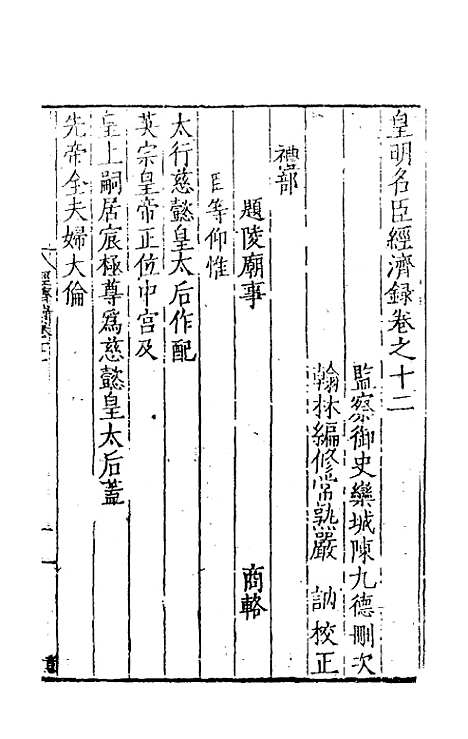 皇明名臣經濟錄卷之十二
監察御史欒城陳九德刪次
翰林編修常熟嚴 訥校正
禮部
題陵廟事 商輅
臣等仰惟
大行慈懿皇太后作配
英宗皇帝正位中宮及
皇上嗣居宸極尊爲慈懿皇太后蓋
先帝全夫婦大倫
經濟錄卷十二 一